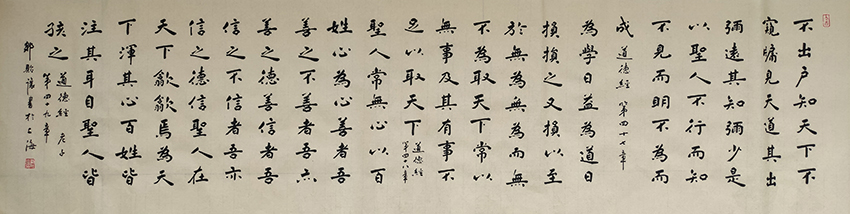 不出户知天下不
窺牖見天道其出
彌遠其知彌少是
以聖人不行而知
不見而明不為而
成 道德經 第四十七章
為學日益為道日
損損之又損以至
於無為無為而無
不為取天下常以
無事及其有事不
足以取天下 道德經
第四十八章
聖人常無心以百
姓心為心善者吾
善之不善者吾亦
善之德善信者吾
信之不信者吾亦
信之德信聖人在
天下歙歙焉為天
下渾其心百姓皆
注其耳目聖人皆
孩之 道德經 老子
第四十九章
書於上海